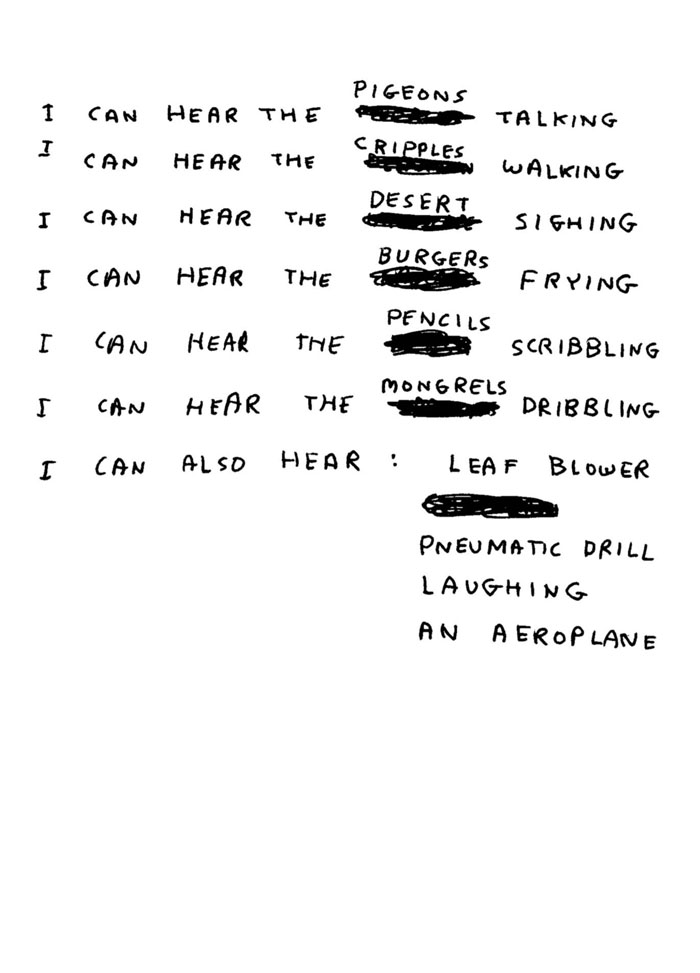 I CAN HEAR THE PIGEONS TALKING
I CAN HEAR THE CRIPPLES WALKING
I CAN HEAR THE DESERT SIGHING
I CAN HEAR THE BURGERS FRYING
I CAN HEAR THE PENCILS SCRIBBLING
I CAN HEAR THE MONGRELS DRIBBLING
I CAN ALSO HEAR : LEAF BLOWER
PNEUMATIC DRILL
LAUGHING
AN AEROPLANE